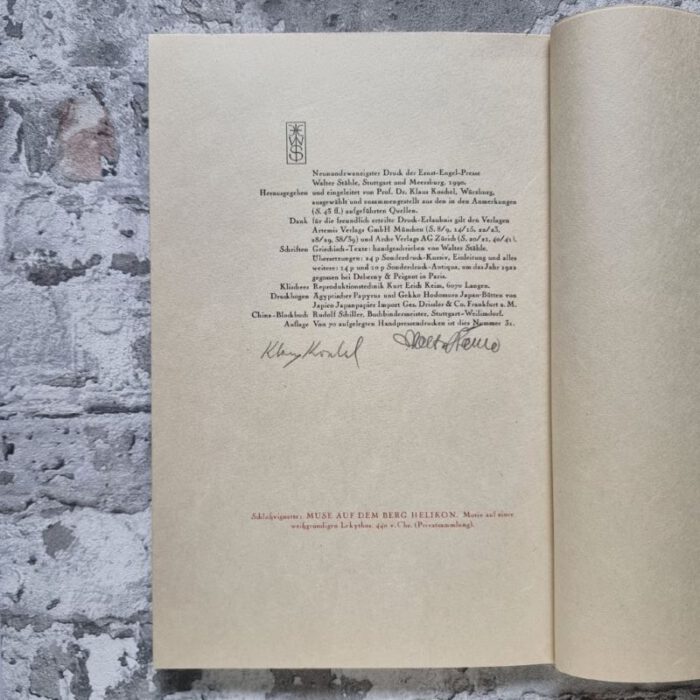 WS
Neunundzwanzigster Druck der Ernst-Engel-Presse
Walter Stähle, Stuttgart und Meersburg, 1990.
Herausgegeben und eingeleitet von Prof. Dr. Klaus Koschel, Würzburg,
ausgewählt und zusammengestellt aus den in den Anmerkungen
(S. 43 ff.) aufgeführten Quellen.
Dank für die freundlich erteilte Druck-Erlaubnis gilt den Verlagen
Artemis Verlags GmbH München (S. 8/9, 14/15, 22/23,
28/29, 38/39) und Arche Verlags AG Zürich (S. 20/21, 40/41).
Schriften Griechisch-Texte: handgeschrieben von Walter Stähle.
Übersetzungen: 24 p Sonderdruck-Kursiv, Einleitung und alles
weitere: 14 p und 10 p Sonderdruck-Antiqua, um das Jahr 1922
gegossen bei Deberny & Peignot in Paris.
Klischees Reproduktionstechnik Kurt Erich Keim, 6070 Langen.
Druckbogen Ägyptischer Papyrus und Gekko Hodomura Japan-Bütten von
Japico Japanpapier Import Ges. Drissler & Co. Frankfurt a. M.
China-Blockbuch Rudolf Schiller, Buchbindermeister, Stuttgart-Weilimdorf.
Auflage Von 70 aufgelegten Handpressendrucken ist dies Nummer 31.
Klaus Koschel
Schlußvignette: MUSE AUF DEM BERG HELIKON. Motiv auf einer
weißgrundigen Lekythos. 440 v. Chr. (Privatsammlung).